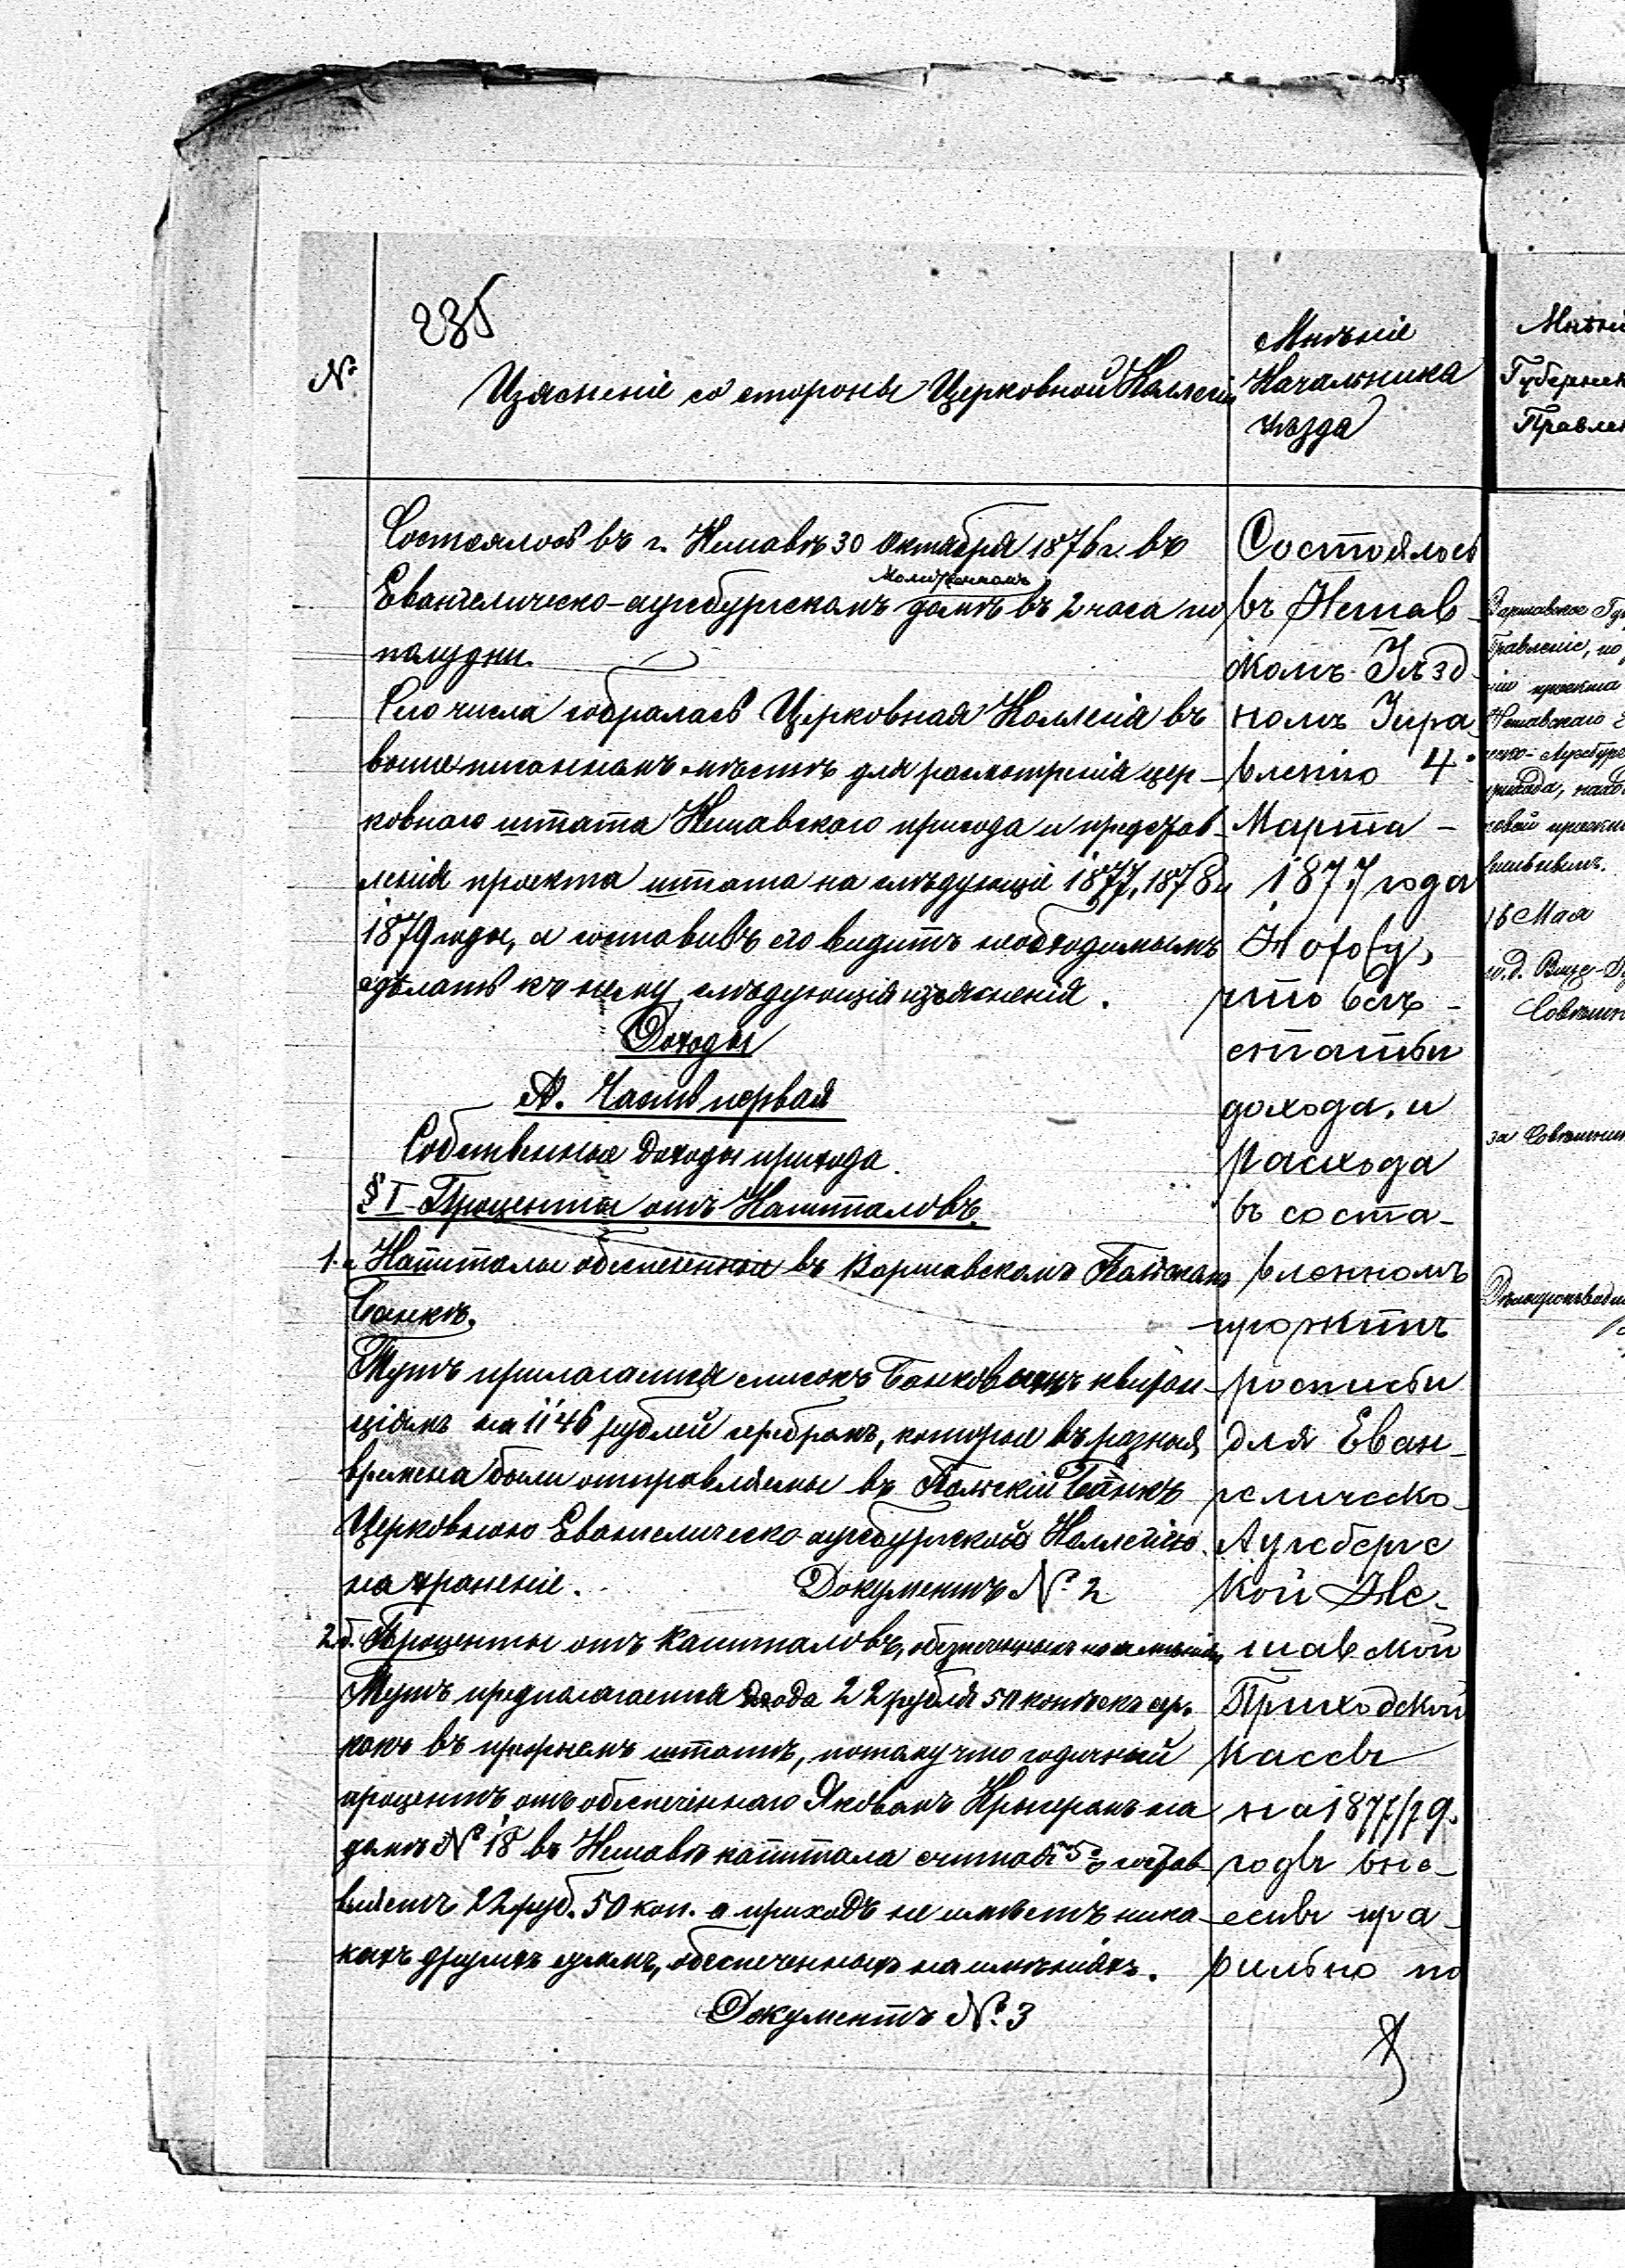 235
№
Изясненіе со стороны Церковной Коллегіи
Состоялось въ г. Нешавѣ 30 Октября 1876 г. въ
Молитвенномъ
Евангелическо-аугсбургскомъ домѣ въ 2 часа по
полудни.
Сего числа собралась Церковная Коллегія въ
вышеписанномъ мѣстѣ для расмотренія цер-
ковнаго штата Нешавскаго прихода и представ-
ленія проекта штата на слѣдующіе 1877, 1878 и
1879 годы, а составивъ его видитъ необходимымъ
сдѣлать къ нему слѣдующія изясненія.
Доходы
А. Часть первая
Собственные доходы прихода.
§ I Проценты отъ Капиталовъ.
1. а Капиталы обеспеченные въ Варшавскомъ Польскомъ
Банкѣ.
Тутъ прилагается списокъ Банковымъ квитан-
ціямъ на 1146 рублей серебромъ, которые въ разныя
времена были отправляемы въ Польскій Банкъ
Церковною Евангелическо-аугсбургской Коллегіею
на храненіе. Документъ № 2
2. б. Проценты отъ капиталовъ, обезпеченныхъ на имѣніяхъ
Тутъ предполагается дохода 22 рубля 50 копѣекъ сер.
какъ въ прежнемъ штатѣ, потому что годичный
процентъ отъ обеспеченнаго Яковомъ Кригеромъ на
домѣ № 18 въ Нешавѣ капитала считая 5% состав-
вляетъ 22 руб. 50 коп. а приходъ не имѣетъ ника-
кихъ другихъ суммъ, обеспеченныхъ на имѣніяхъ.
Документъ № 3
Мнѣніе
Начальника
уѣзда
Состоялось
въ Нешав-
скомъ Уѣзд-
номъ Упра-
вленію 4
Марта -
1877 года
Нахожу,
что всѣ -
статьи
дохода и
расхода
въ соста-
вленномъ
проэктѣ
росписи
для Еван-
геличеcко-
Аугсбургс
кой Не-
шавской
Приходской
кассы
на 1877/79
годы вне-
сены пра-
вильно по
Мнѣні
Губернск
Правлен
Варшавское Гу
Правленіе, по
ніи проекта
Нешавскаго
ско-Аугсбург
прихода, нахо
овой проект
16 Мая
и.д. Вице-Гу
Совѣтн
за Совѣтник
Дѣлопроизводи